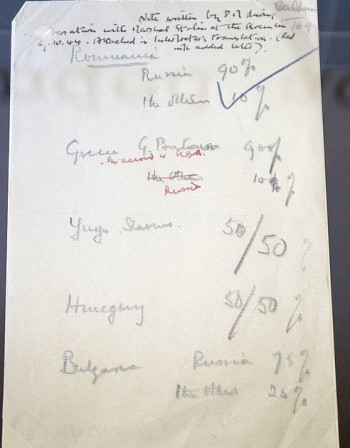 Note written by P.M. during
conversation with Marshal Stalin at the Kremlin
9.10.44. Attached is Interpreter's translation. (Red
ink added later).
Roumania
Russia 90%
The others 10%
Greece G. Britain 90%
in accord w USA.
The others 10%
Russia
Yugo Slavia 50/50 %
Hungary 50/50 %
Bulgaria Russia 75%
The others 25%